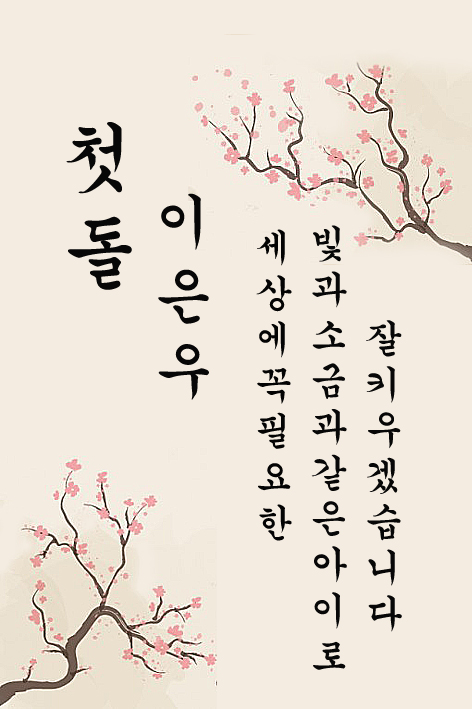 첫돌
이은우
세상에꼭필요한
빛과소금과같은아이로
잘키우겠습니다